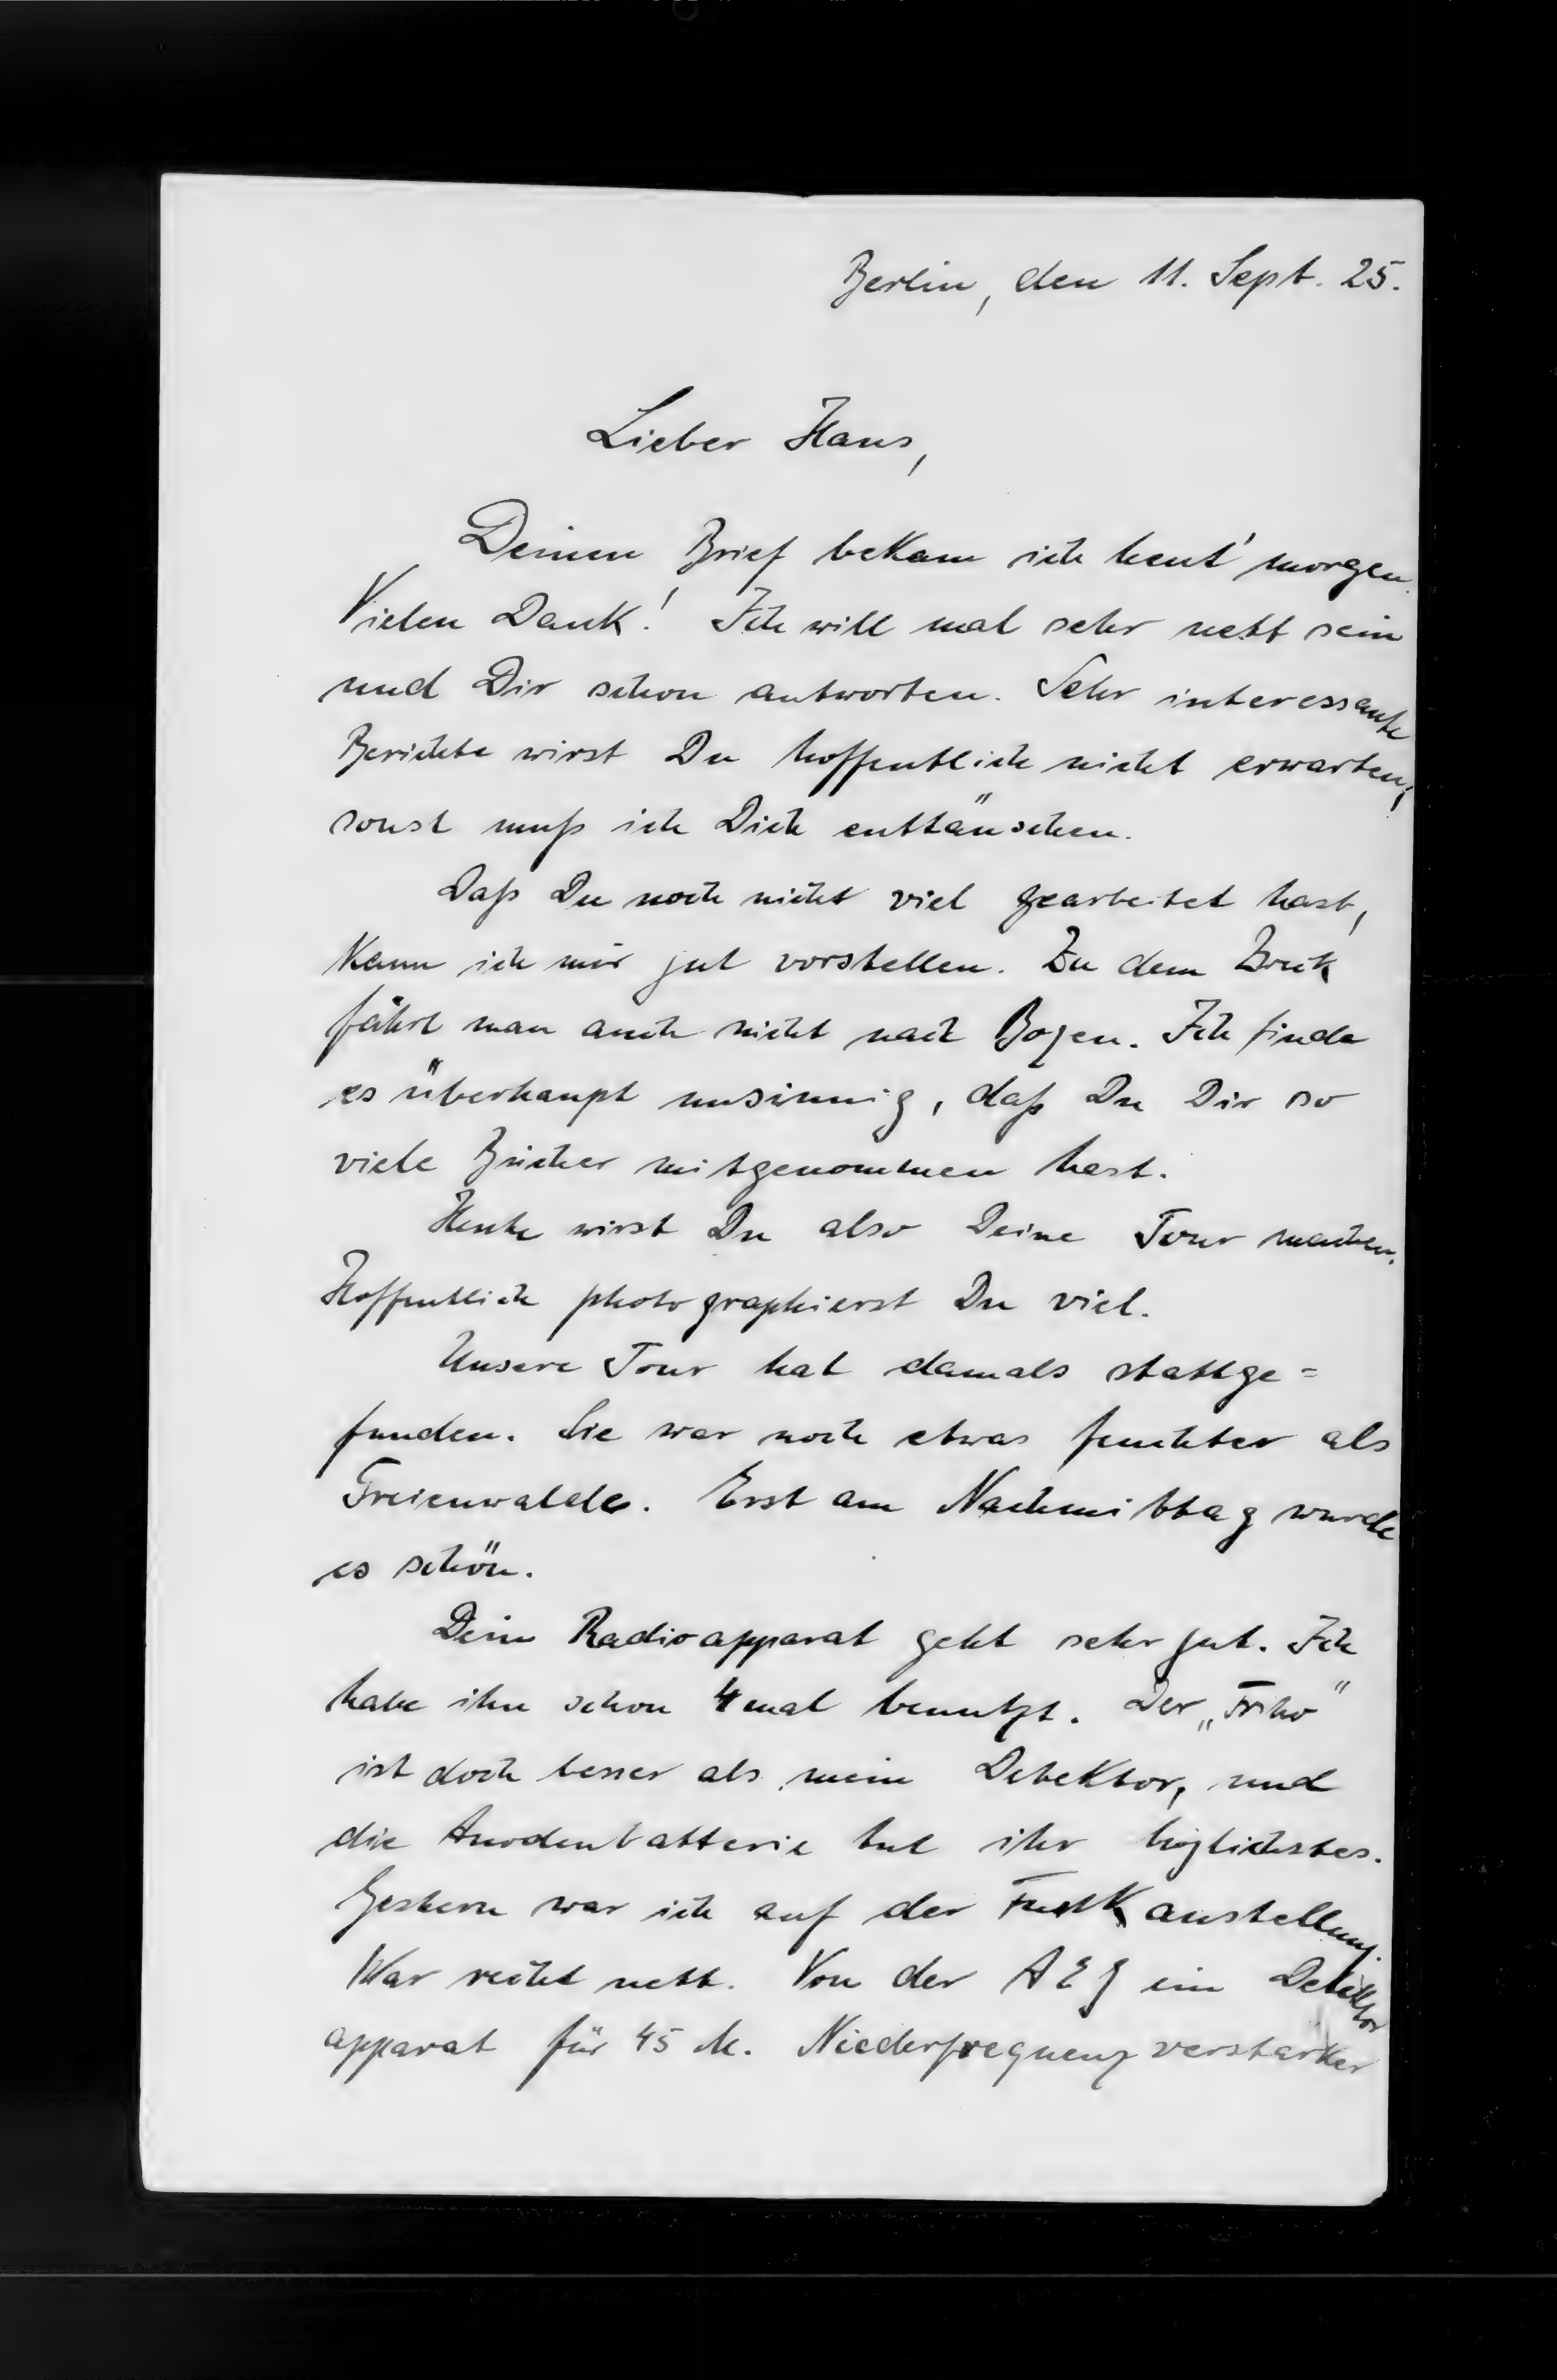 Berlin, den 11. Sept. 25.
Lieber Hans,
Deinen Brief bekam ich heut' morgen.
Vielen Dank! Ich will mal sehr nett sein
und Dir schon antworten. Sehr interessante
Berichte wirst Du hoffentlich nicht erwarten,
sonst muß ich Dich enttäuschen.
Daß Du noch nicht viel gearbeitet hast,
kann ich mir gut vorstellen. Zu dem Zweck
fährt man auch nicht nach Bozen. Ich finde
es überhaupt unsinnig, daß Du Dir so
viele Bücher mitgenommen hast.
Heute wirst Du also Deine Tour machen.
Hoffentlich photographierst Du viel.
Unsere Tour hat damals stattge=
funden. Sie war noch etwas feuchter als
Freienwalde. Erst am Nachmittag wurde
es schön.
Dein Radioapparat geht sehr gut. Ich
habe ihn schon 4 mal benutzt. Der
ist doch besser als mein Detektor, und
die Anodenbatterie tut ihr möglichstes.
Gestern war ich auf der Funkaustellung.
War recht nett. Von der AEG ein Detektor
apparat für 45 M. Niederfrequenzverstärker